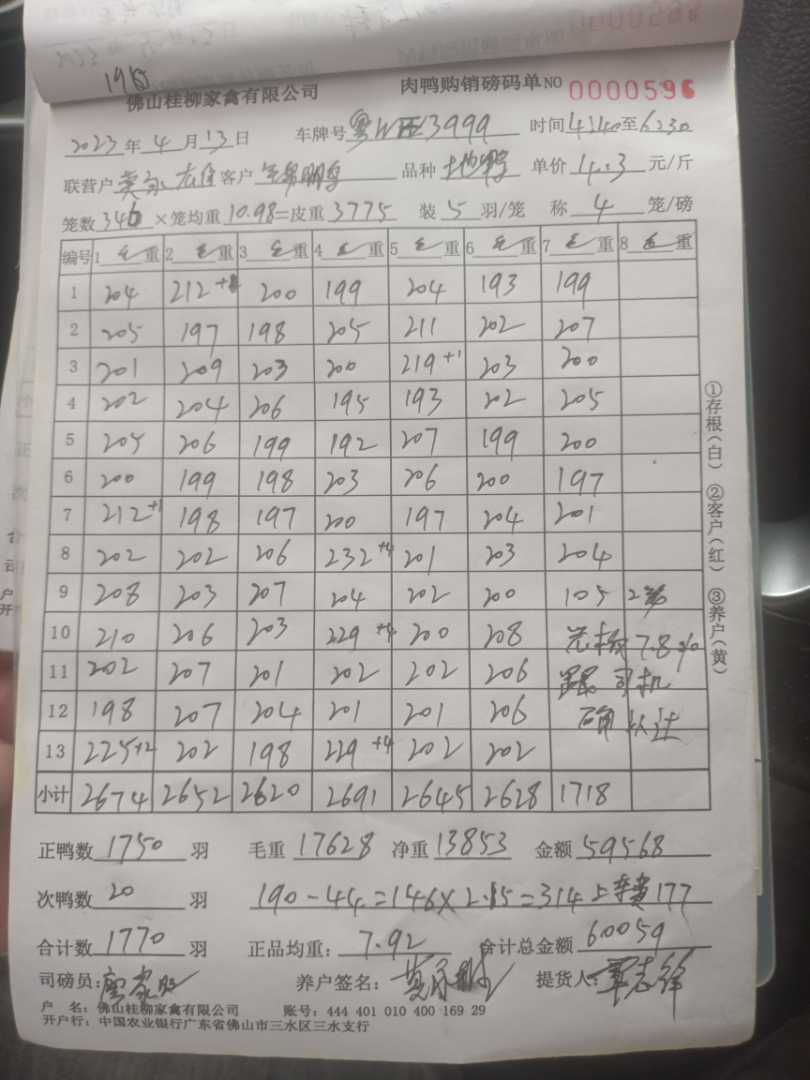 198
佛山桂柳家禽有限公司 肉鸭购销磅码单 NO 0000596
2023年4月13日 车牌号 3999 时间4:40至6:30
联营户 客户 品种 土地鸭 单价4.3元/斤
笼数346×笼均重10.98=皮重3775 装5羽/笼 称4笼/磅
编号 1毛重 2毛重 3毛重 4毛重 5毛重 6毛重 7毛重 8毛重
1 204 212+8 200 199 204 193 199
2 205 197 198 205 211 202 207
3 201 209 203 200 219+1 203 200
4 202 204 206 195 193 202 205
5 205 206 199 192 207 199 200
6 200 199 198 203 206 200 197
7 212+1 198 197 200 197 204 201
8 202 202 206 232+4 201 203 204
9 208 203 207 204 202 200 105 2笼
10 210 206 203 229+4 200 208 7.8%
11 202 207 201 202 202 206 跟司机
12 198 207 204 201 201 206 确认过
13 225+2 202 198 229+4 202 202
小计 2674 2652 2620 2691 2645 2628 1718
正鸭数1750羽 毛重17628 净重13853 金额59568
次鸭数20羽 190-44=146×2.15=314 上车费177
合计数1770羽 正品均重:7.92 合计总金额60059
司磅员: 养户签名: 提货人:
户 名:佛山桂柳家禽有限公司 账号:444 401 010 400 169 29
开户行:中国农业银行广东省佛山市三水区三水支行
①存根(白) ②客户(红) ③养户(黄)